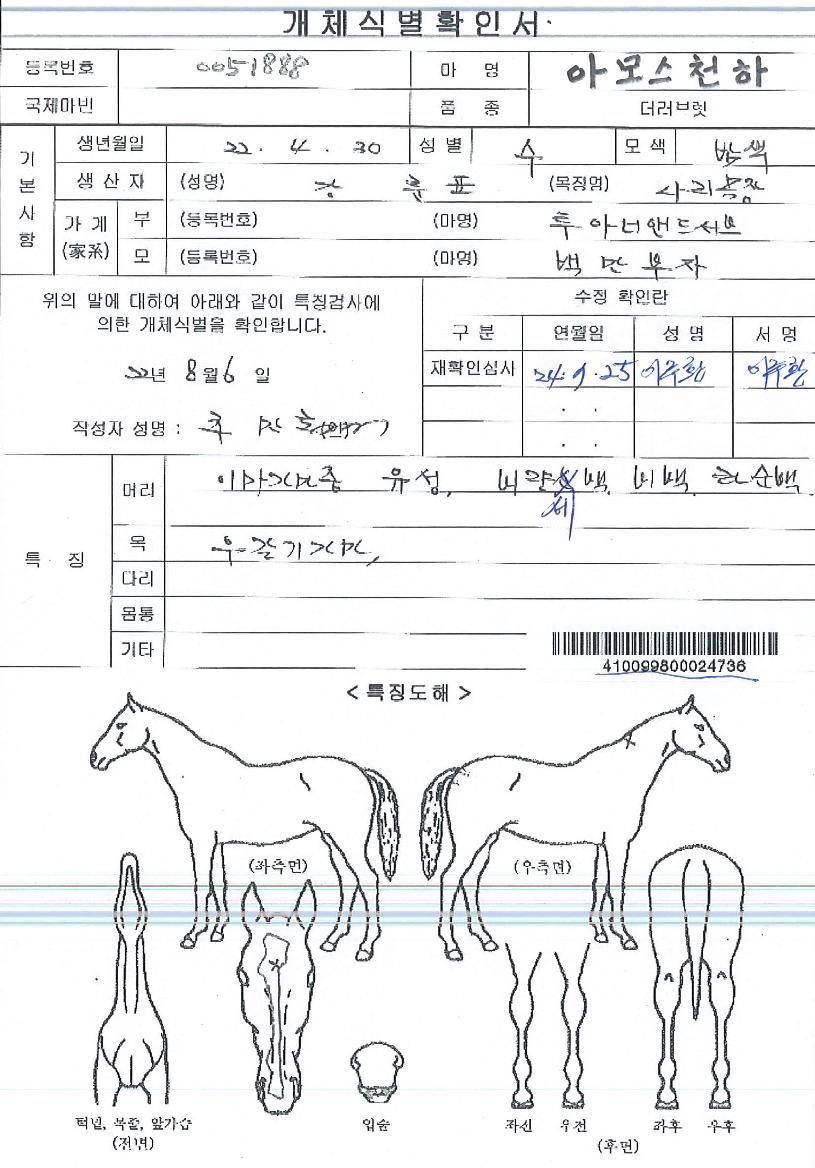 개체식별확인서
등록번호 0051888 마 명 아모스천하
국제마빈 품 종 더러브렛
기본사항
생년월일 22. 4. 30 성별 수 모색 밤색
생산자 (성명) 강 훈 표 (목장명)
가계 (家系) 부 (등록번호) (마명) 투아너앤드서브
모 (등록번호) (마명) 백만부자
위의 말에 대하여 아래와 같이 특징검사에
의한 개체식별을 확인합니다.
22년 8월 6일
작성자 성명 :
수정 확인란
구분 연월일 성명 서명
재확인심사 24. 9. 25 이주환 이주환
. .
. .
특 징
머리 유성, 비백
목
다리
몸통
기타
410099800024736
< 특징도해 >
(좌측면) (우측면)
턱밑, 목줄, 앞가슴 입술 좌전 우전 좌후 우후
(전면) (후면)